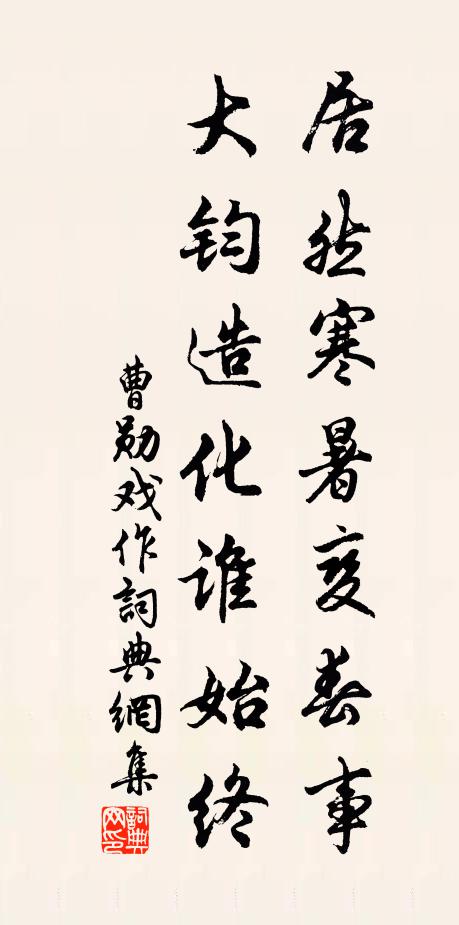 居然寒暑变春事
大钧造化谁始终
曹勋戏作詞典網集
詞典网印